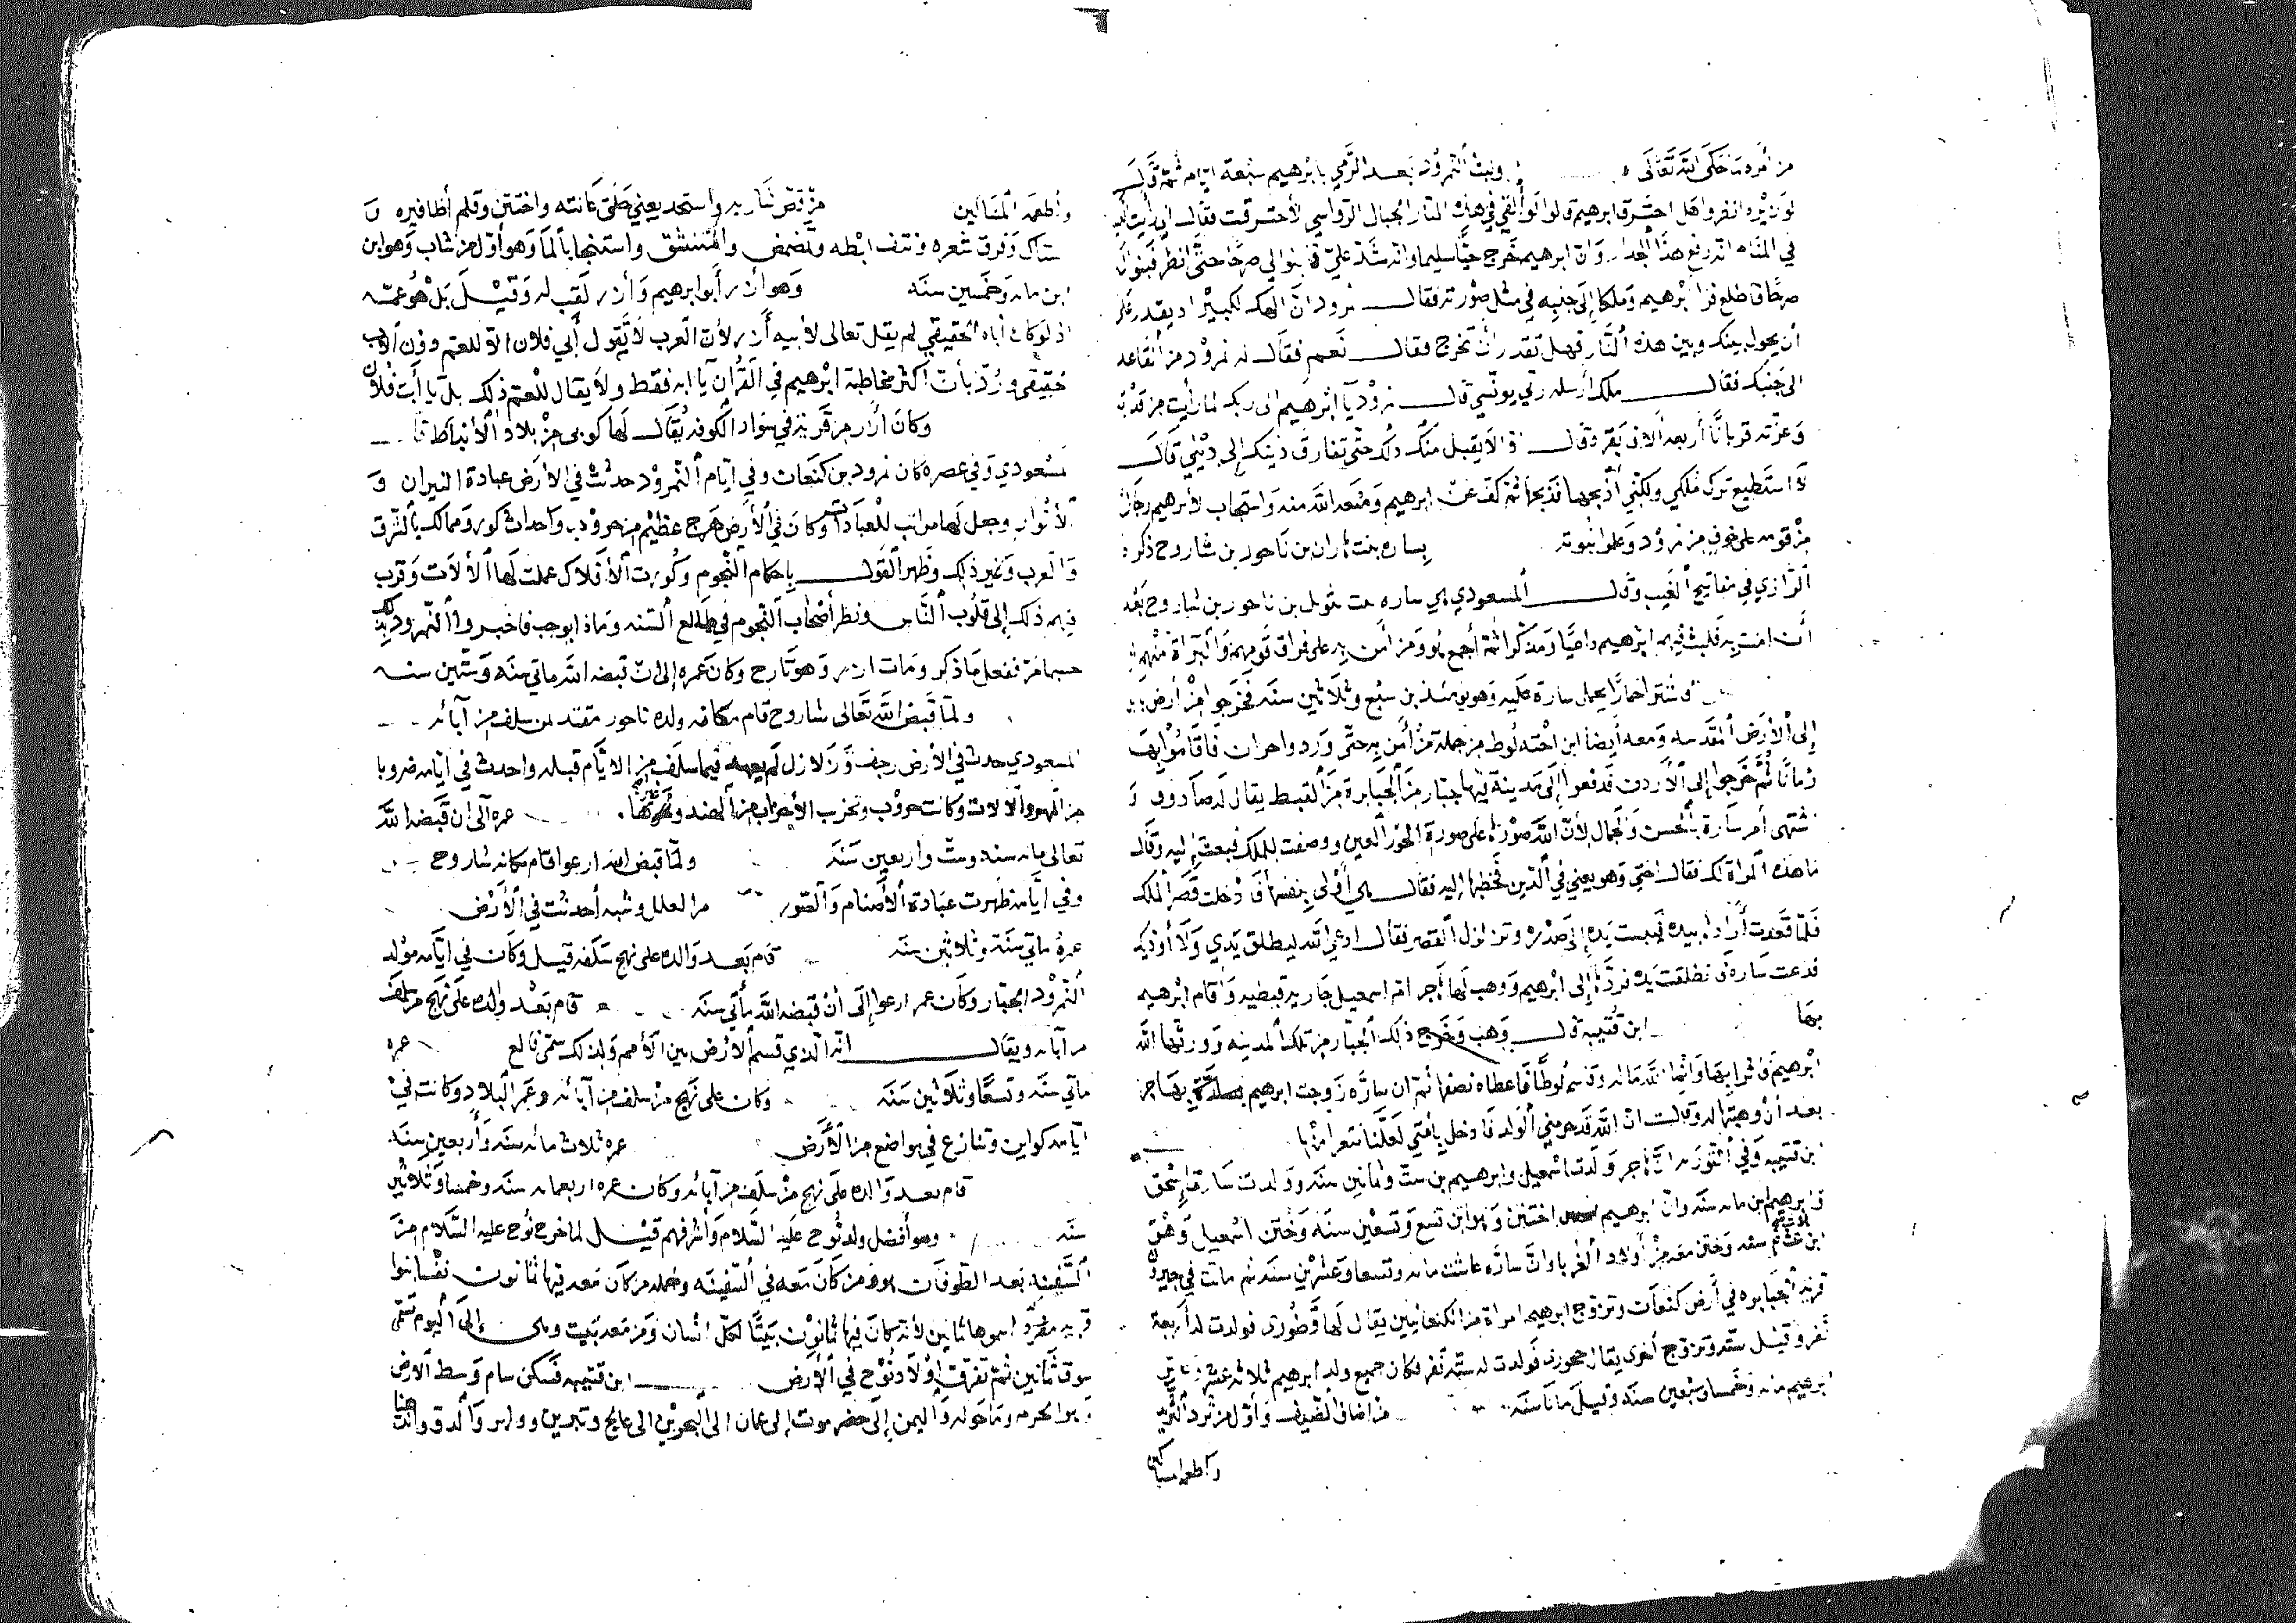 من أمره ما حكى الله تعالى ولبث النمرود بعد الرمي بابرهيم سبعة ايام ثمة قال
انفروا هل احترق ابرهيم قالوا لو ألقي في هذه النار الجبال الرواسي لأحترقت فقال اني رأيت
في المنام انه رفع هذا الجدار وان ابرهيم خرج حيا سليما وانه شد علي فابنوا لي صرحا حتى انظر فبنوا له
صرحا فاطلع فرأ ابرهيم وملكا إلى جنبه في مثل صورته فقال نمرود ان الهك لكبير اذ يقدر على
أن يحول بينك وبين هذه النار فهل تقدر ان تخرج فقال نعم فقال له نمرود من القاعد
الى جنبك فقال ملك ارسله ربي يونسني قال نمرود يا ابرهيم انى ربك لما رأيت من قدرته
وعزته قربانا أربعة الاف بقرة قال اذا لا يقبل منك ذلك حتى تفارق دينك إلى ديني قال
لا استطيع ترك ملكي ولكني أذبحها فذبحها ثمة كف عن ابرهيم ومنعه الله منه واستجاب لأبرهيم رجال
من قومه على خوف من نمرود وعلوا نبوته بساره بنت هاران بن ناحور بن شاروح ذكره
الرازي في مفاتيح الغيب وقال المسعودي هي ساره بنت بثويل بن ناحور بن شاروح بعد
أن امنت به فلبث فيهم ابرهيم داعيا ومذكرا ثمة أجمع هو ومن أمن به على فراق قومهم والبراة منهم
واشترا حمارا يحمل سارة عليه وهو يومئذ بن سبع وثلاثين سنه فخرجوا من أرض
إلى الأرض المقدسه ومعه أيضا ابن اخته لوط من جملة من أمن به حتى وردوا حران فاقاموا بها
زمانا ثم خرجوا إلى الأردن فدفعوا إلى مدينة فيها جبار من الجبابرة من القبط يقال له صادوف و
اشتهى أمر سارة بالحسن والجمال لأن الله صورها على صورة الحور العين ووصفت للملك فبعث إليه وقال
ما هذه المراة لك فقال اختي وهو يعني في الدين فخطبها إليه فقال هي أولى بنفسها فادخلت قصر الملك
فلما قعدت أرادها بيده فيبست يده إلى صدره وتزلزل القصر فقال ادعي الله ليطلق يدي ولا أوذيك
فدعت ساره فانطلقت يده فردها إلى ابرهيم ووهب لها أجر ام اسمعيل جاريه قبطيه واقام ابرهيم
بها ابن قتيبه قال وهب وخرج ذلك الجبار من تلك المدينه وورثها الله
ابرهيم فاثرا بها وانما الله ماله وقاسم لوطا فاعطاه نصفها ثم ان سارة زوجت ابرهيم بهاجر
بعد أن وهبتها له وقالت ان الله قد حرمني الولد فادخل بأمتي لعلنا نتعزا منها
ابن قتيبه وفي التوريه ان هاجر ولدت اسمعيل وابرهيم بن ست وثمانين سنه وولدت سارة إسحق
وابرهيم ابن مائه سنه وان ابرهيم اختتن وهو ابن تسع وتسعين سنه وختن اسمعيل وهو
ابن ثلاث عشر سنه وختن معه من أولاد الغربا وان سارة عاشت مائه وتسعا وعشرين سنه ثم ماتت في حيرون
قرية الجبابره في أرض كنعان وتزوج ابرهيم امراة من الكنعانيين يقال لها قطورى فولدت له أربعة
نفر وقيل ستة وتزوج أخرى يقال حجورى فولدت له ستة نفر فكان جميع ولد ابرهيم ثلاثة عشر
ابرهيم مائه وخمسا وسبعين سنه وقيل مائتا سنه من اضاف الضيف وأول من ثرد الثريد
واطعم المساكين
واطعمه المساكين من قص شاربه واستحد يعني حلق عانته واختتن وقلم أظافيره و
ستاك وفرق شعره ونتف ابطه وتمضمض واستنشق واستنجا بالما وهو أول من شاب وهو ابن
ابن مائه وخمسين سنه وهو أزر أبو ابرهيم وأزر لقب له وقيل بل هو عمه
اذ لو كان أباه الحقيقي لم يقل تعالى لأبيه أزر لأن العرب لا تقول أبي فلان الا للعم دون الاب
الحقيقي ورد بأن أكثر مخاطبة ابرهيم في القرآن يا ابه فقط ولا يقال للعم ذلك بل يا ابت فلان
وكان أزر من قرية في سواد الكوفه يقال لها كوبى من بلاد الأنباط قال
المسعودي وفي عصره كان نمرود بن كنعان وفي ايام النمرود حدثت في الأرض عبادة النيران و
الأنوار وجعل لها مراتب للعبادات وكان في الأرض هرج عظيم من حروب واحداث كور وممالك بالشرق
والغرب وغير ذلك وظهر القول باحكام النجوم وكورت الأفلاك عملت لها الألات وقرب
فهم ذلك إلى قلوب الناس ونظر أصحاب النجوم في طالع السنه وماذا يوجب فاخبروا النمرود بذلك
حسبما مر ففعل ما ذكر ومات ازر وهو تارح وكان عمره إلى ان قبضه الله مائتي سنه وستين سنه
ولما قبض الله تعالى شاروح قام مكانه ولده ناحور مقتد بمن سلف من آبائه
المسعودي حدث في الأرض رجف وزلازل لم يعهد فيما سلف من الايام قبله واحدث في ايامه ضروبا
من المهن والالات وكانت حروب وتحزب الأحزاب من الهند وغيرها عمره الى ان قبضه الله
تعالى مائه سنه وست واربعين سنه ولما قبض الله ارعوا قام مكانه شاروح
وفي ايامه ظهرت عبادة الأصنام والصور من العلل وشبه أحدثت في الأرض
عمرة مائتي سنة وثلاثين سنه قام بعد والده على نهج سلفه قيل وكان في ايامه مولد
النمرود الجبار وكان عمر ارعوا إلى أن قبضه الله مأتي سنه قام بعد والده على نهج من سلف
من آبائه ويقال انه الذي قسم الأرض بين الأمم ولذلك سمي فالع عمره
مائتي سنه وتسعا وثلاثين سنه وكان على نهج من سلف من آبائه وعمر البلاد وكانت في
ايامه كواين وتنازع في مواضع من الأرض عمره ثلاث مائه سنه وأربعين سنه
قام بعد والده على نهج من سلف من آبائه وكان عمره اربعمائه سنه وخمسا وثلاثين
سنه وهو أفضل ولد نوح عليه السلام وأشرفهم قيل لما خرج نوح عليه السلام من
السفينه بعد الطوفان هو ومن كان معه في السفينه وجمله من كان معه فيها ثمانون نفسا بنوا
قريه اسموها ثمانين لأنه كان فيها ثمانون بيتا لكل انسان ومن معه بيت وهي إلى اليوم تسمى
سوق ثمانين ثم تفرق اولاد نوح في الأرض ابن قتيبه فسكن سام وسط الارض
وهو الحرم وما حوله واليمن إلى حضر موت إلى عمان الى البحرين الى عالج وتبرين ووبار والدو والدهنا